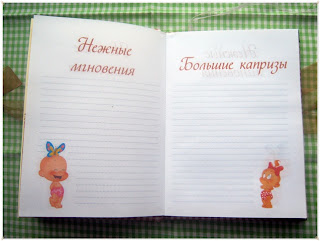 Нежные
мгновения
Большие капризы